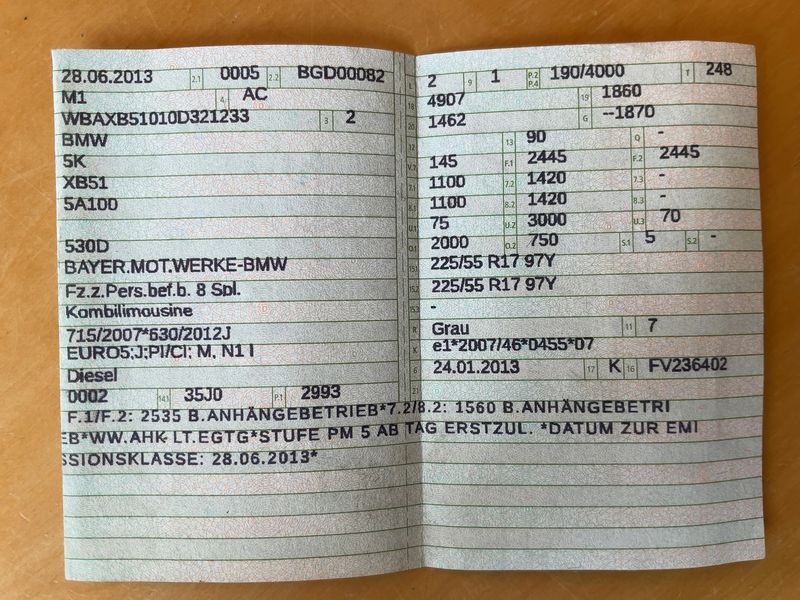 28.06.2013 2.1 0005 2.2 BGD00082
M1 4 AC
WBAXB51010D321233 3 2
BMW
5K
XB51
5A100
530D
BAYER.MOT.WERKE-BMW
Fz.z.Pers.bef.b. 8 Spl.
Kombilimousine
715/2007*630/2012J
EURO5;J;PI/CI; M, N1 I
Diesel
0002 14.1 35J0 P.1 2993
L 2 9 1 P.2 P.4 190/4000 T 248
18 4907 19 1860
20 1462 G --1870
12 13 90 Q -
V.7 145 F.1 2445 F.2 2445
7.1 1100 7.2 1420 7.3 -
8.1 1100 8.2 1420 8.3 -
U.1 75 U.2 3000 U.3 70
O.1 2000 O.2 750 S.1 5 S.2 -
15.1 225/55 R17 97Y
15.2 225/55 R17 97Y
15.3 -
R Grau 11 7
K e1*2007/46*0455*07
6 24.01.2013 17 K 16 FV236402
21
F.1/F.2: 2535 B.ANHÄNGEBETRIEB*7.2/8.2: 1560 B.ANHÄNGEBETRI
EB*WW.AHK LT.EGTG*STUFE PM 5 AB TAG ERSTZUL. *DATUM ZUR EMI
SSIONSKLASSE: 28.06.2013*